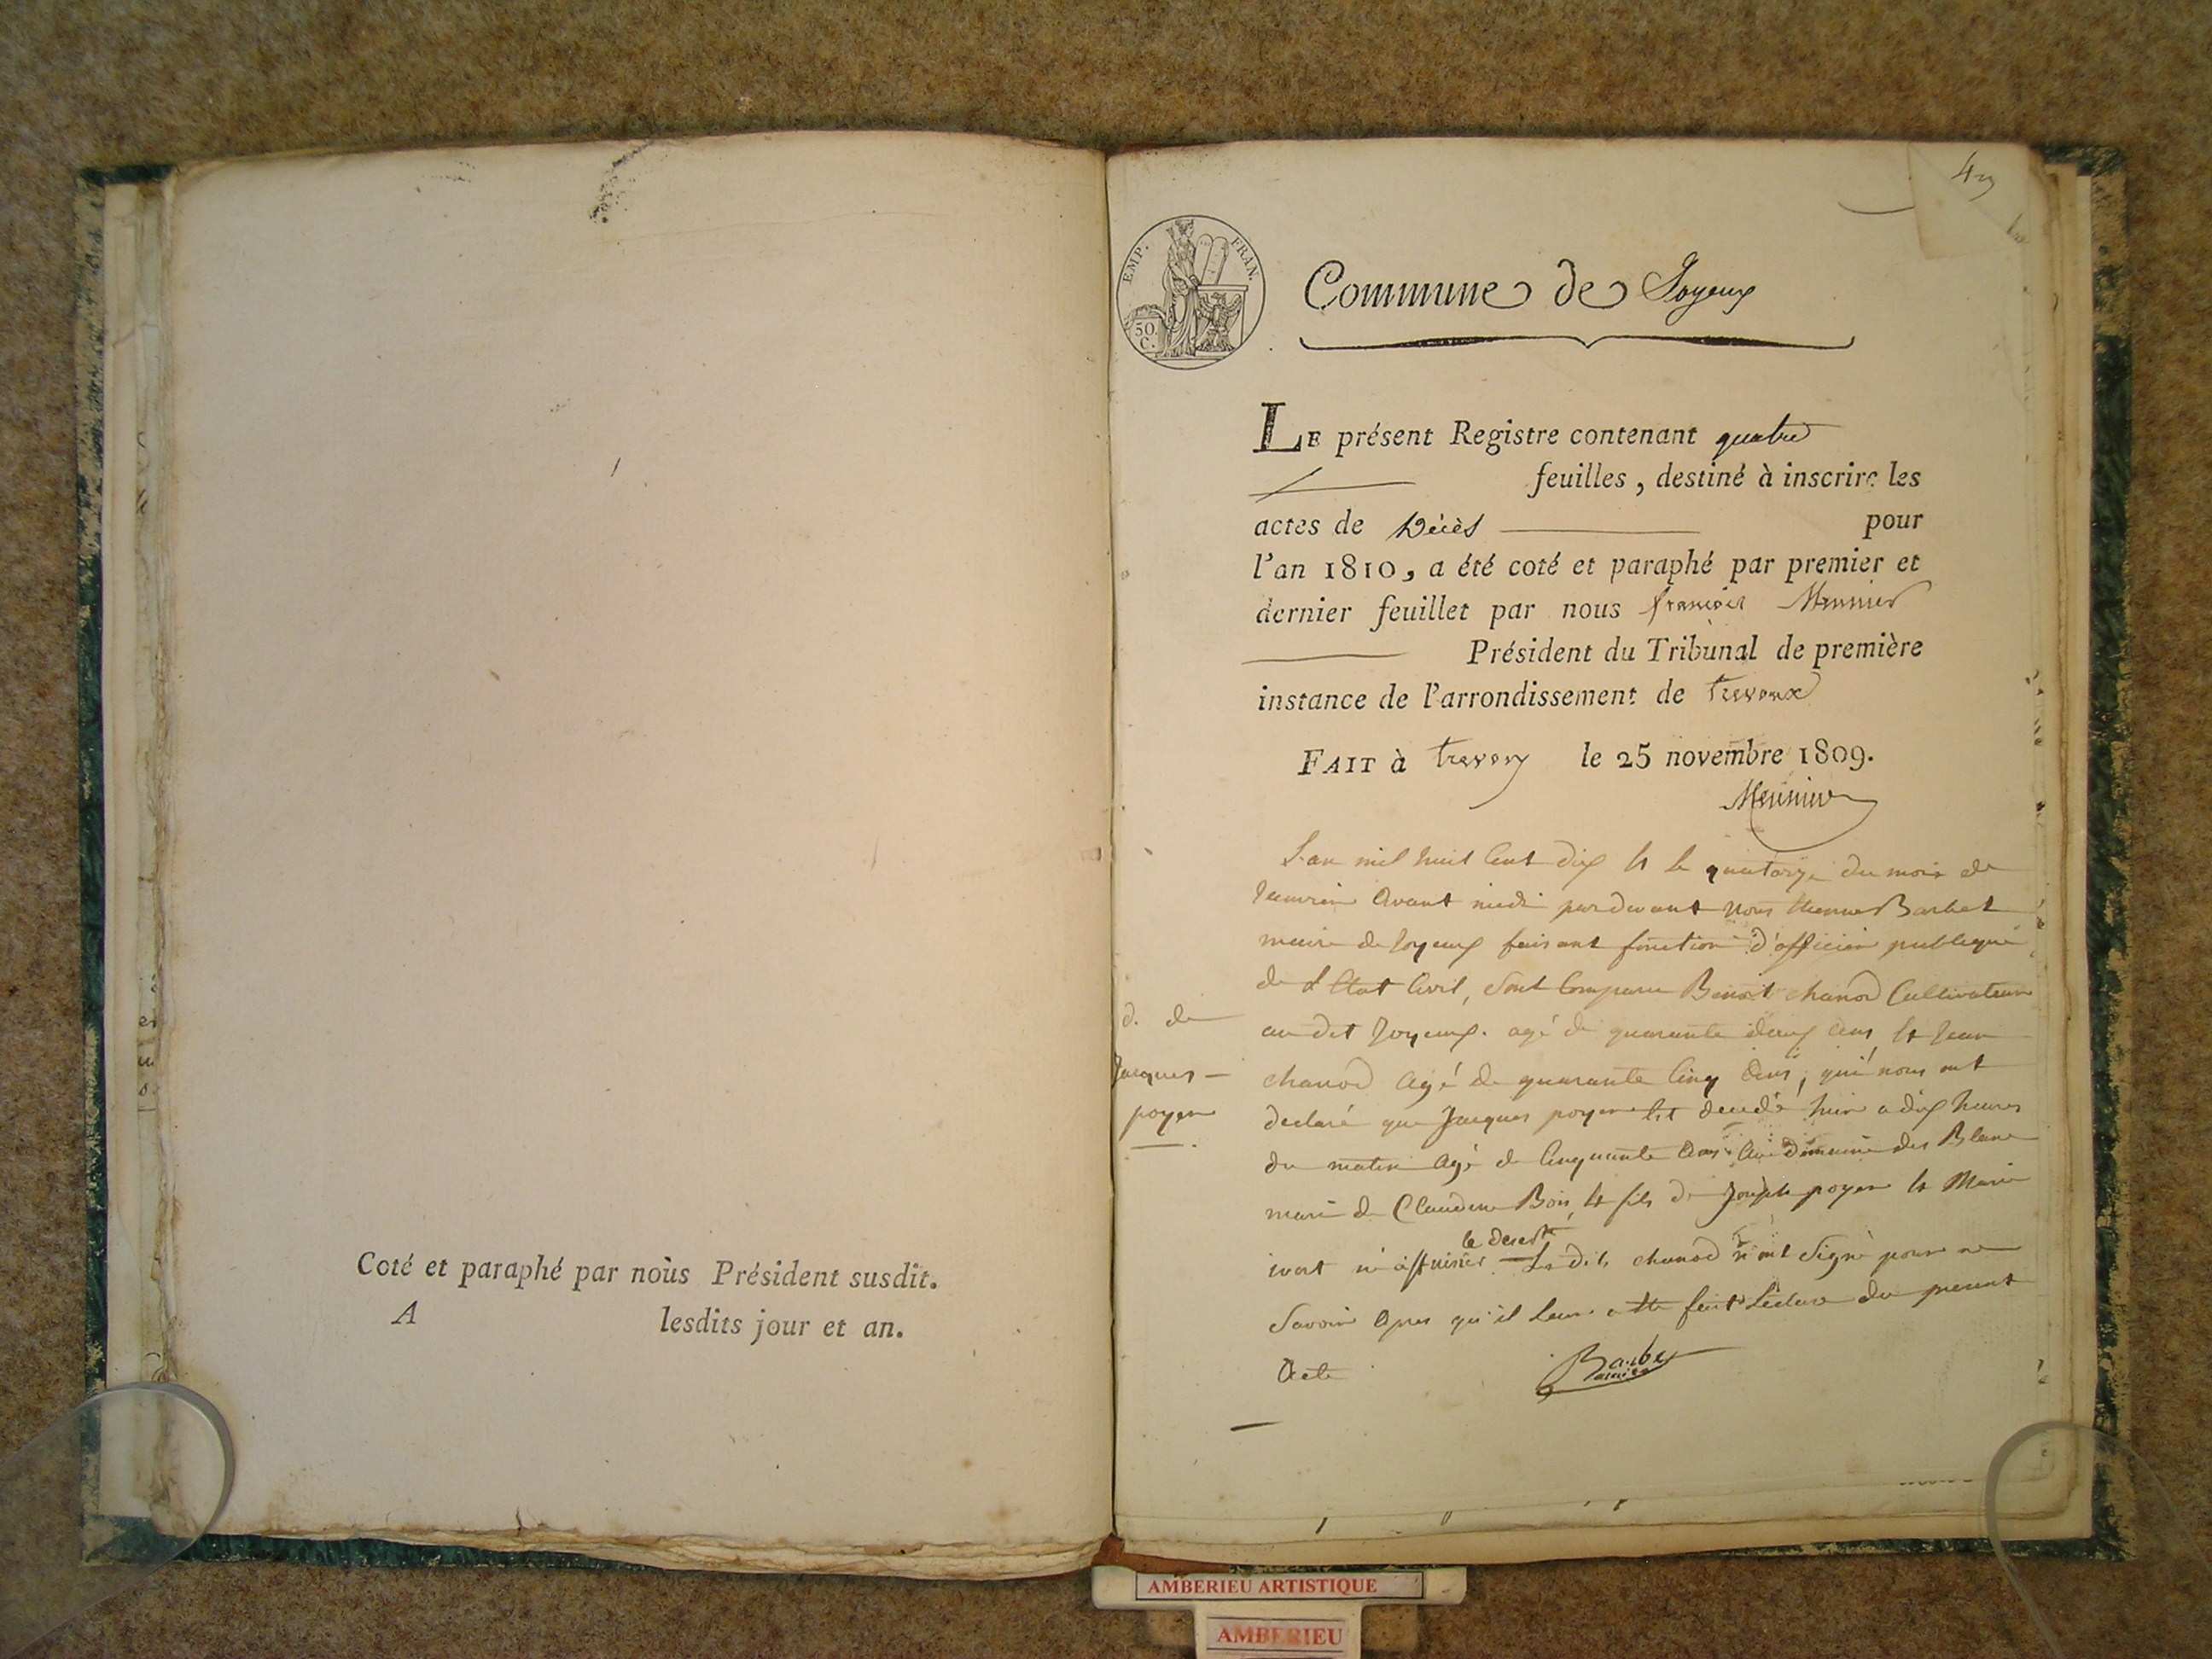 Coté et paraphé par nous Président susdit.
A lesdits jour et an.
EMP. FRAN.
50.
C.
Commune de Joyeux
LE présent Registre contenant quatre
feuilles, destiné à inscrire les
actes de Décès pour
l'an 1810, a été coté et paraphé par premier et
dernier feuillet par nous françois Meunier
Président du Tribunal de première
instance de l'arrondissement de Trevoux
FAIT à Trevoux le 25 novembre 1809.
Meunier
d. de
Jacques
poyen
L'an mil huit Cent dix et le quatorze du mois de
Janvier avant midi pardevant nous Etienne Barbet
maire de Joyeux faisant fonction d'officier publique
de l Etat Civil, sont Comparu Benoit chanod Cultivateur
au dit Joyeux. agé de quarante deux ans et Jean
chanod agé de quarante Cinq ans, qui nous ont
declaré que Jacques poyen est decedé hier a dix heures
du matin agé de Cinquante ans au domaine des Blanc
mari de Claudine Bois et fils de Joseph poyen et Marie
le desert
né à Les dits chanod n'ont signé pour ne
savoir apres qu'il leur a ete fait Lecture du present
Acte
Barbet
maire
AMBERIEU ARTISTIQUE
AMBERIEU